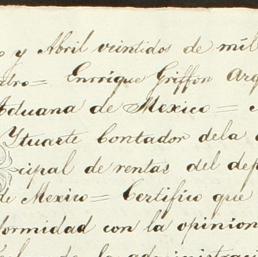 y Abril veintidos de mil
Enrrique Griffon
Aduana de Mexico=
Ytuarte Contador de la
cipal de rentas del dep
de Mexico= Certifico que
formidad con la opinion
de la administraci